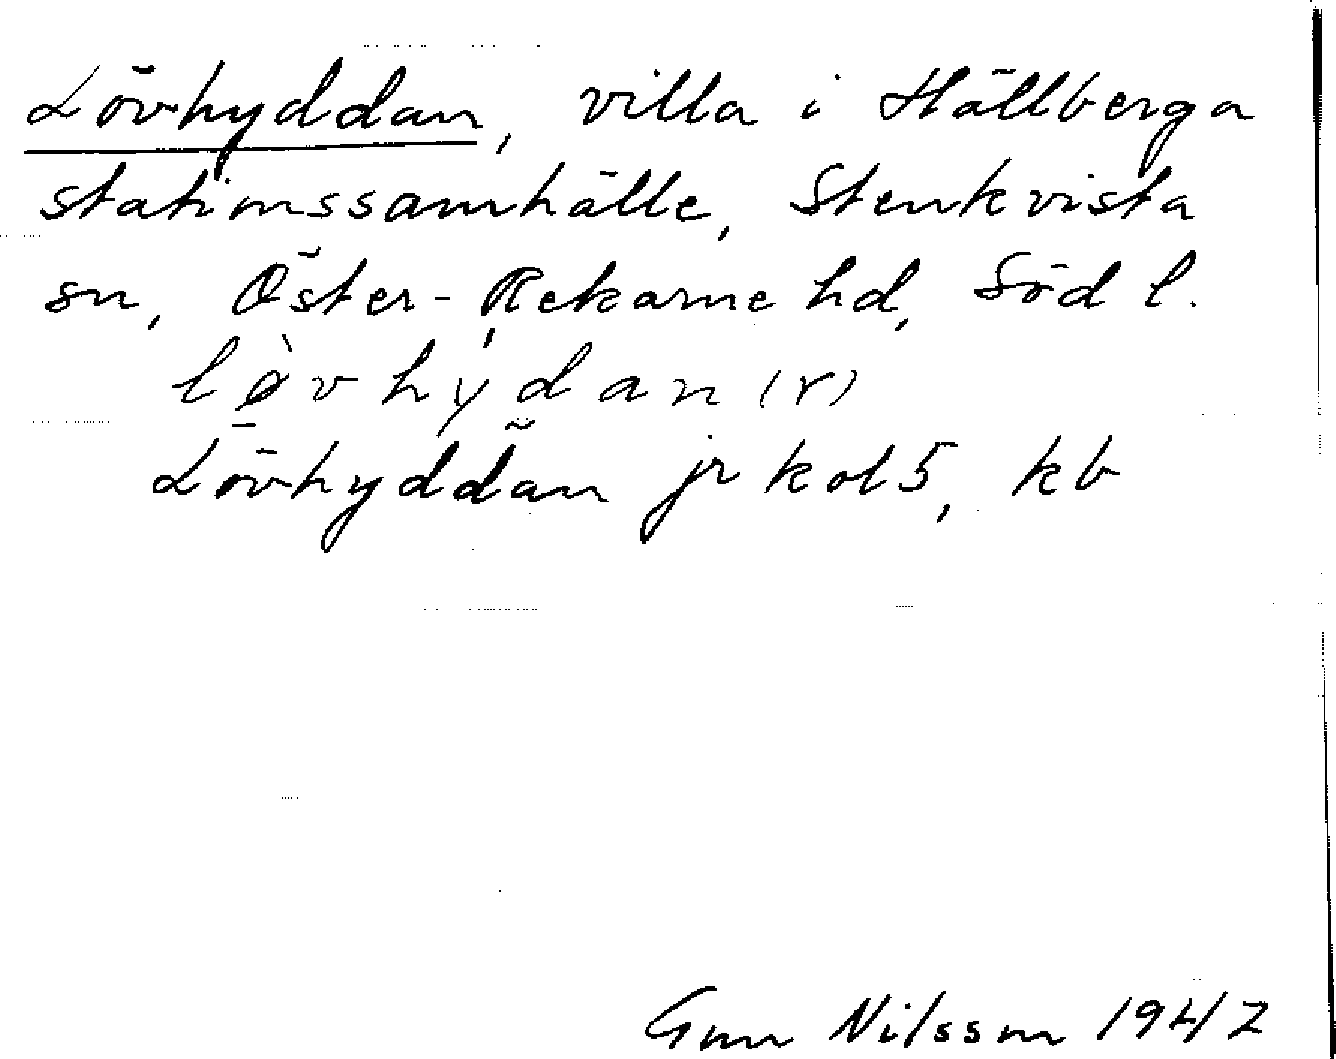 Lövhyddan, villa i Hällberga
stationssamhälle, Stenkvista
sn, Öster-Rekarne hd, Söd l.
lø̀vhy̍dan (r)
Lövhyddan jr kol 5, kb
Gun Nilsson 1942